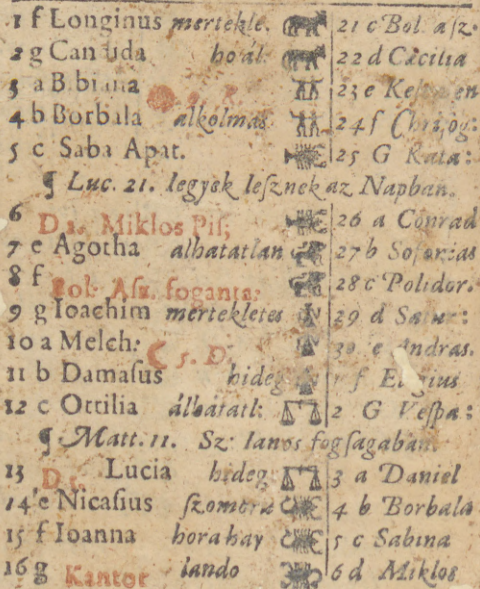 1 f Longinus mertekle. 21 c Bol aſz.
2 g Candida ho ál. 22 d Cecilia
3 a Bibiana 23 e
4 b Borbala alkolmas 24 f Chriſog:
5 c Saba Apat. 25 G Kata:
¶ Luc. 21. Iegyek leſznek az Napban.
6 D Miklos Piſ; 26 a Conrad
7 e Agotha alhatatlan 27 b
8 f Bol. Aſz. foganta: 28 c Polidor.
9 g Ioachim mertekletes 29 d Satur:
10 a Melch: 30 e Andras.
☾ 5. D.
11 b Damaſus hideg f Eligius
12 c Ottilia álhatatl: 2 G Veſpa:
¶ Matt. 11. Sz: Ianos fogſagaban.
13 D Lucia hideg 3 a Daniel
14 e Nicaſius ſzomoru 4 b Borbala
15 f Ioanna hora hay 5 c Sabina
16 g Kantor iando 6 d Miklos